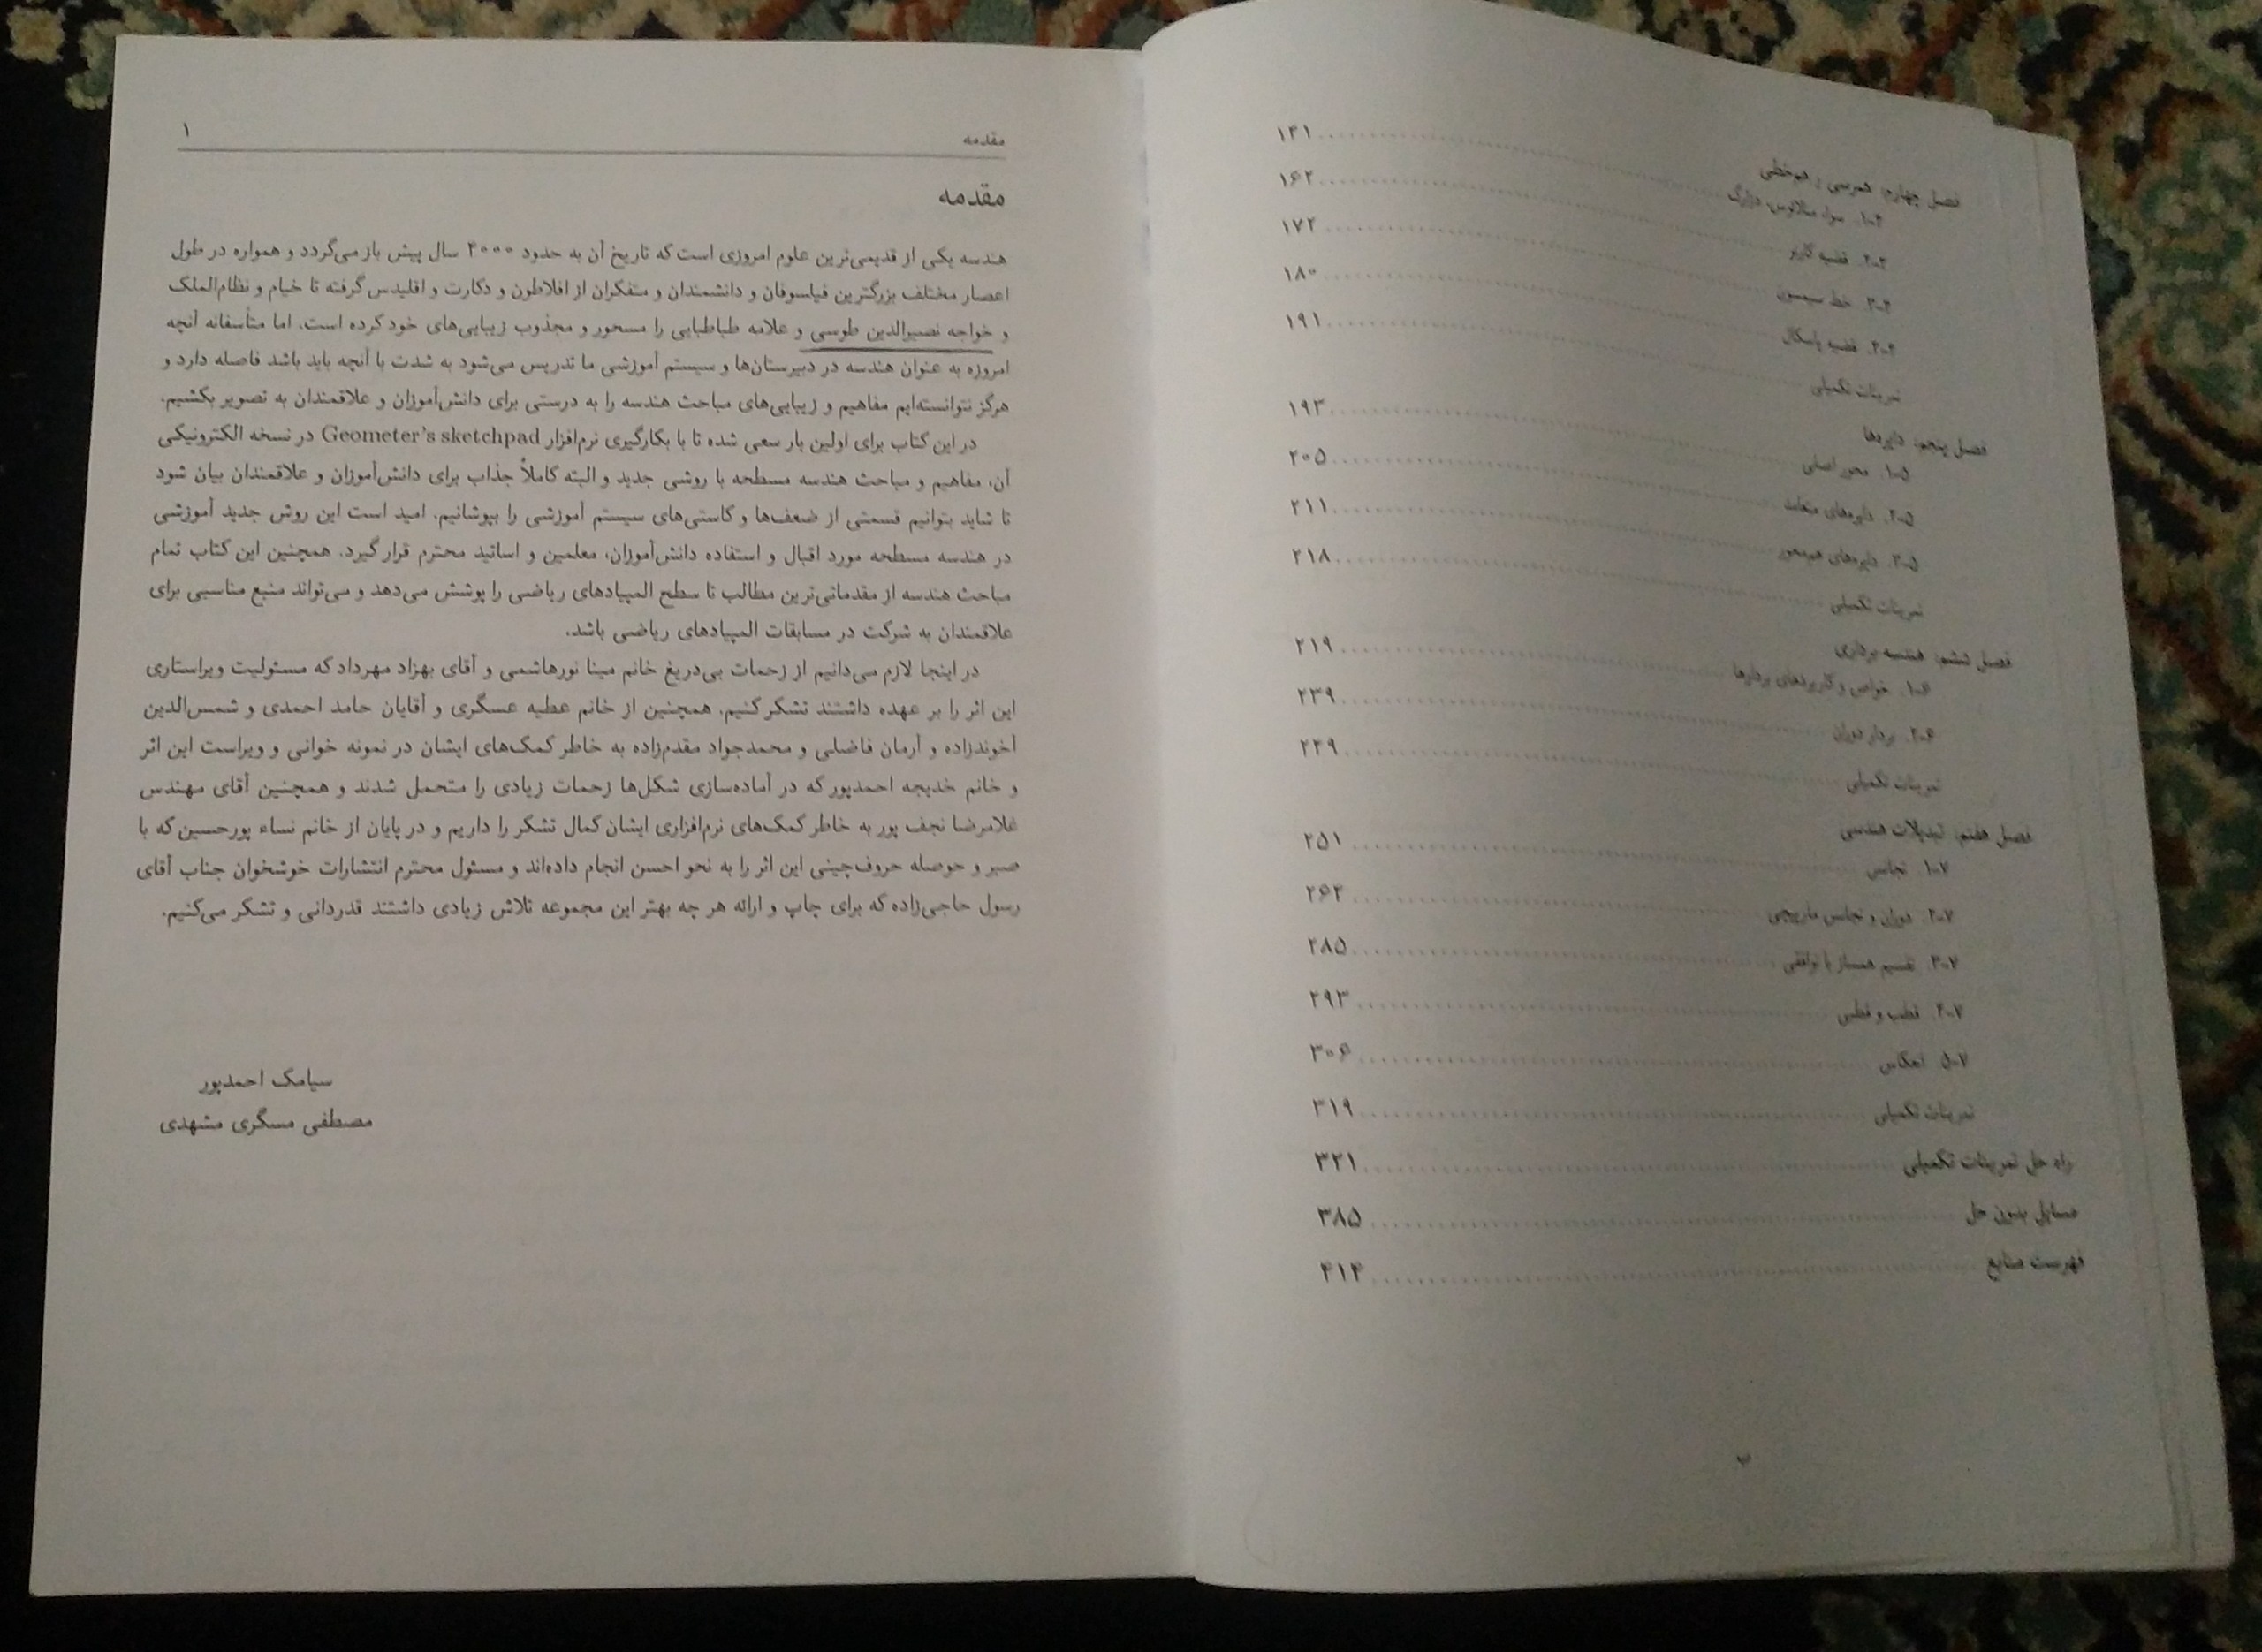 فصل چهارم، همرسی و هم‌خطی
۴-۱. سوا، منلائوس، دزارگ ۱۴۱
۴-۲. قضیه کارنو ۱۶۲
۴-۳. خط سیمسون ۱۷۲
۴-۴. قضیه پاسکال ۱۸۰
تمرینات تکمیلی ۱۹۱
فصل پنجم، دایره‌ها
۵-۱. محور اصلی ۱۹۳
۵-۲. دایره‌های متعامد ۲۰۵
۵-۳. دایره‌های هم‌محور ۲۱۱
تمرینات تکمیلی ۲۱۸
فصل ششم، هندسه برداری
۶-۱. خواص و کاربردهای بردارها ۲۱۹
۶-۲. بردار دوران ۲۳۹
تمرینات تکمیلی ۲۴۹
فصل هفتم، تبدیلات هندسی
۷-۱. تجانس ۲۵۱
۷-۲. دوران و تجانس مارپیچی ۲۶۴
۷-۳. تقسیم همساز یا توافقی ۲۸۵
۷-۴. قطب و قطبی ۲۹۳
۷-۵. انعکاس ۳۰۶
تمرینات تکمیلی ۳۱۹
راه حل تمرینات تکمیلی ۳۲۱
مسایل بدون حل ۳۸۵
فهرست منابع ۴۱۴
ب
مقدمه ۱
مقدمه
هندسه یکی از قدیمی‌ترین علوم امروزی است که تاریخ آن به حدود ۴۰۰۰ سال پیش باز می‌گردد و همواره در طول
اعصار مختلف بزرگترین فیلسوفان و دانشمندان و متفکران از افلاطون و دکارت و اقلیدس گرفته تا خیام و نظام‌الملک
و خواجه نصیرالدین طوسی و علامه طباطبایی را مسحور و مجذوب زیبایی‌های خود کرده است. اما متأسفانه آنچه
امروزه به عنوان هندسه در دبیرستان‌ها و سیستم آموزشی ما تدریس می‌شود به شدت با آنچه باید باشد فاصله دارد و
هرگز نتوانسته‌ایم مفاهیم و زیبایی‌های مباحث هندسه را به درستی برای دانش‌آموزان و علاقمندان به تصویر بکشیم.
در این کتاب برای اولین بار سعی شده تا با بکارگیری نرم‌افزار Geometer's sketchpad در نسخه الکترونیکی
آن، مفاهیم و مباحث هندسه مسطحه با روشی جدید و البته کاملاً جذاب برای دانش‌آموزان و علاقمندان بیان شود
تا شاید بتوانیم قسمتی از ضعف‌ها و کاستی‌های سیستم آموزشی را بپوشانیم. امید است این روش جدید آموزشی
در هندسه مسطحه مورد اقبال و استفاده دانش‌آموزان، معلمین و اساتید محترم قرار گیرد. همچنین این کتاب تمام
مباحث هندسه از مقدماتی‌ترین مطالب تا سطح المپیادهای ریاضی را پوشش می‌دهد و می‌تواند منبع مناسبی برای
علاقمندان به شرکت در مسابقات المپیادهای ریاضی باشد.
در اینجا لازم می‌دانیم از زحمات بی‌دریغ خانم مینا نورهاشمی و آقای بهزاد مهرداد که مسئولیت ویراستاری
این اثر را بر عهده داشتند تشکر کنیم. همچنین از خانم عطیه عسگری و آقایان حامد احمدی و شمس‌الدین
آخوندزاده و آرمان فاضلی و محمدجواد مقدم‌زاده به خاطر کمک‌های ایشان در نمونه خوانی و ویراست این اثر
و خانم خدیجه احمدپور که در آماده‌سازی شکل‌ها زحمات زیادی را متحمل شدند و همچنین آقای مهندس
غلامرضا نجف پور به خاطر کمک‌های نرم‌افزاری ایشان کمال تشکر را داریم و در پایان از خانم نساء پورحسین که با
صبر و حوصله حروف‌چینی این اثر را به نحو احسن انجام داده‌اند و مسئول محترم انتشارات خوشخوان جناب آقای
رسول حاجی‌زاده که برای چاپ و ارائه هر چه بهتر این مجموعه تلاش زیادی داشتند قدردانی و تشکر می‌کنیم.
سیامک احمدپور
مصطفی مسگری مشهدی